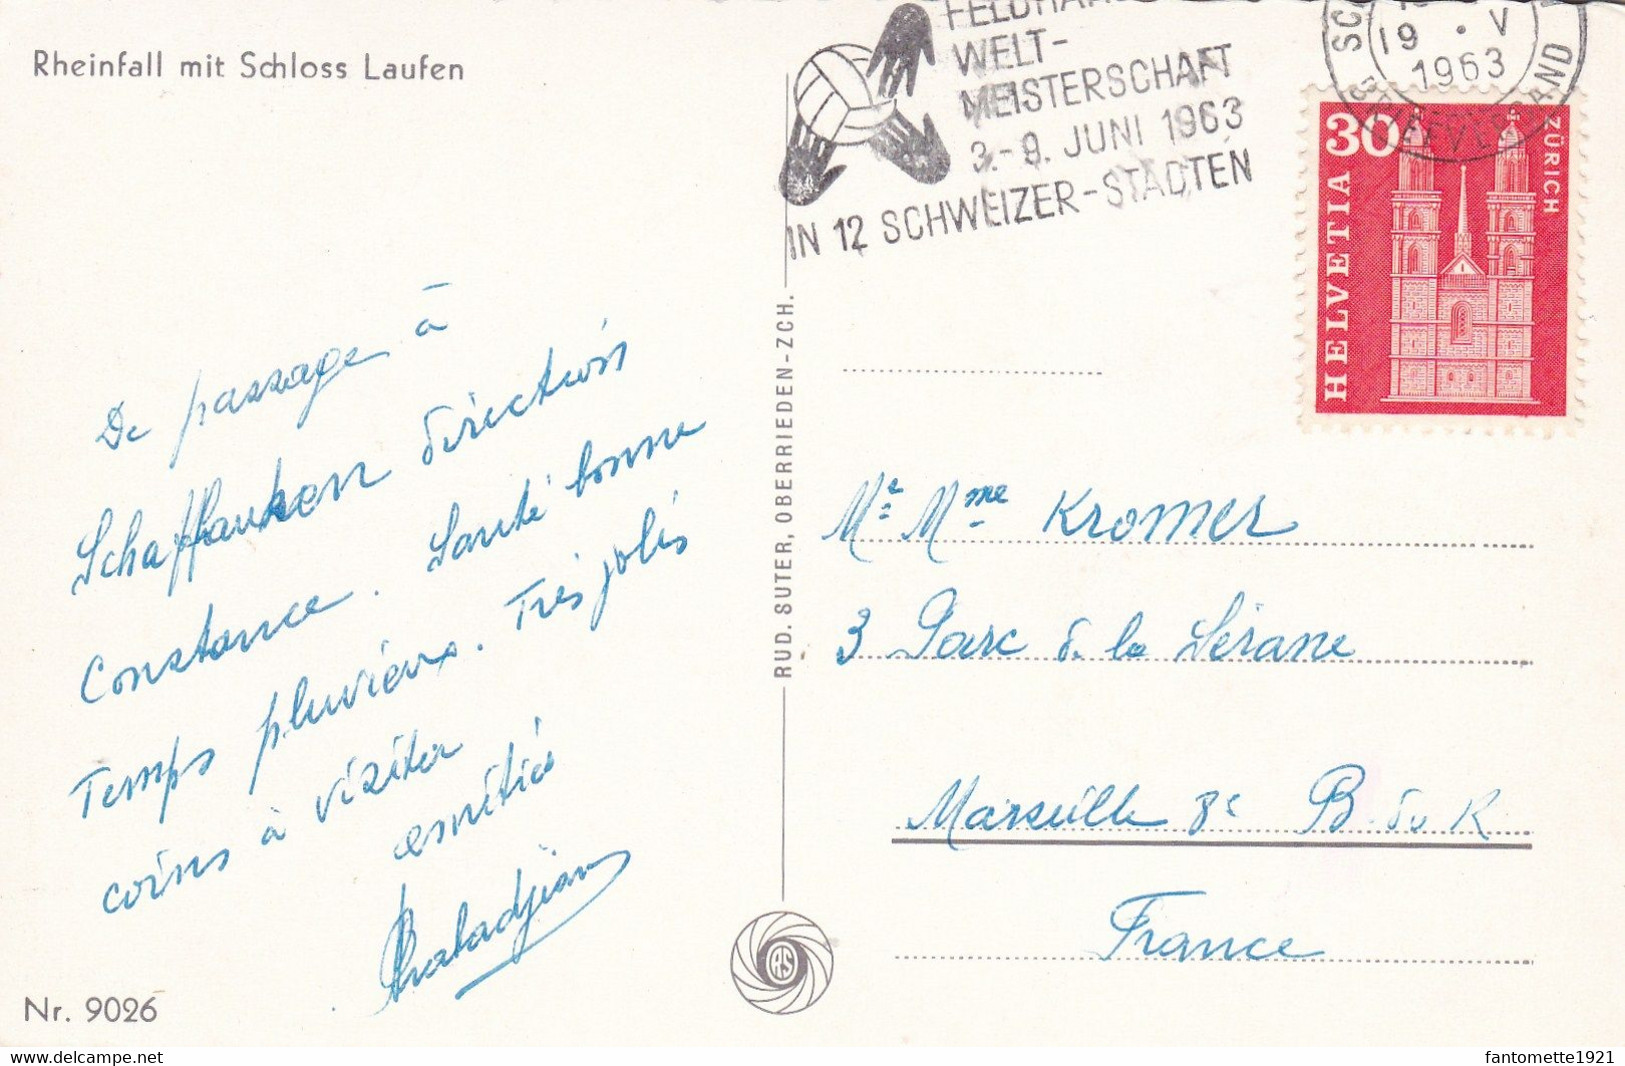 Rheinfall mit Schloss Laufen
WELT-
MEISTERSCHAFT
3.-9. JUNI 1963
IN 12 SCHWEIZER-STÄDTEN
19.V
1963
30
HELVETIA
ZÜRICH
De passage à
Schaffausen direction
Constance. Santé bonne
Temps pluvieux. Très jolis
coins à visiter
amitiés
RUD. SUTER, OBERRIEDEN-ZCH.
RS
Mr Mme Kromer
3 Parc de la Sérane
Marseille 8e B. du R
France
Nr. 9026
delcampe.net
fantomette1921